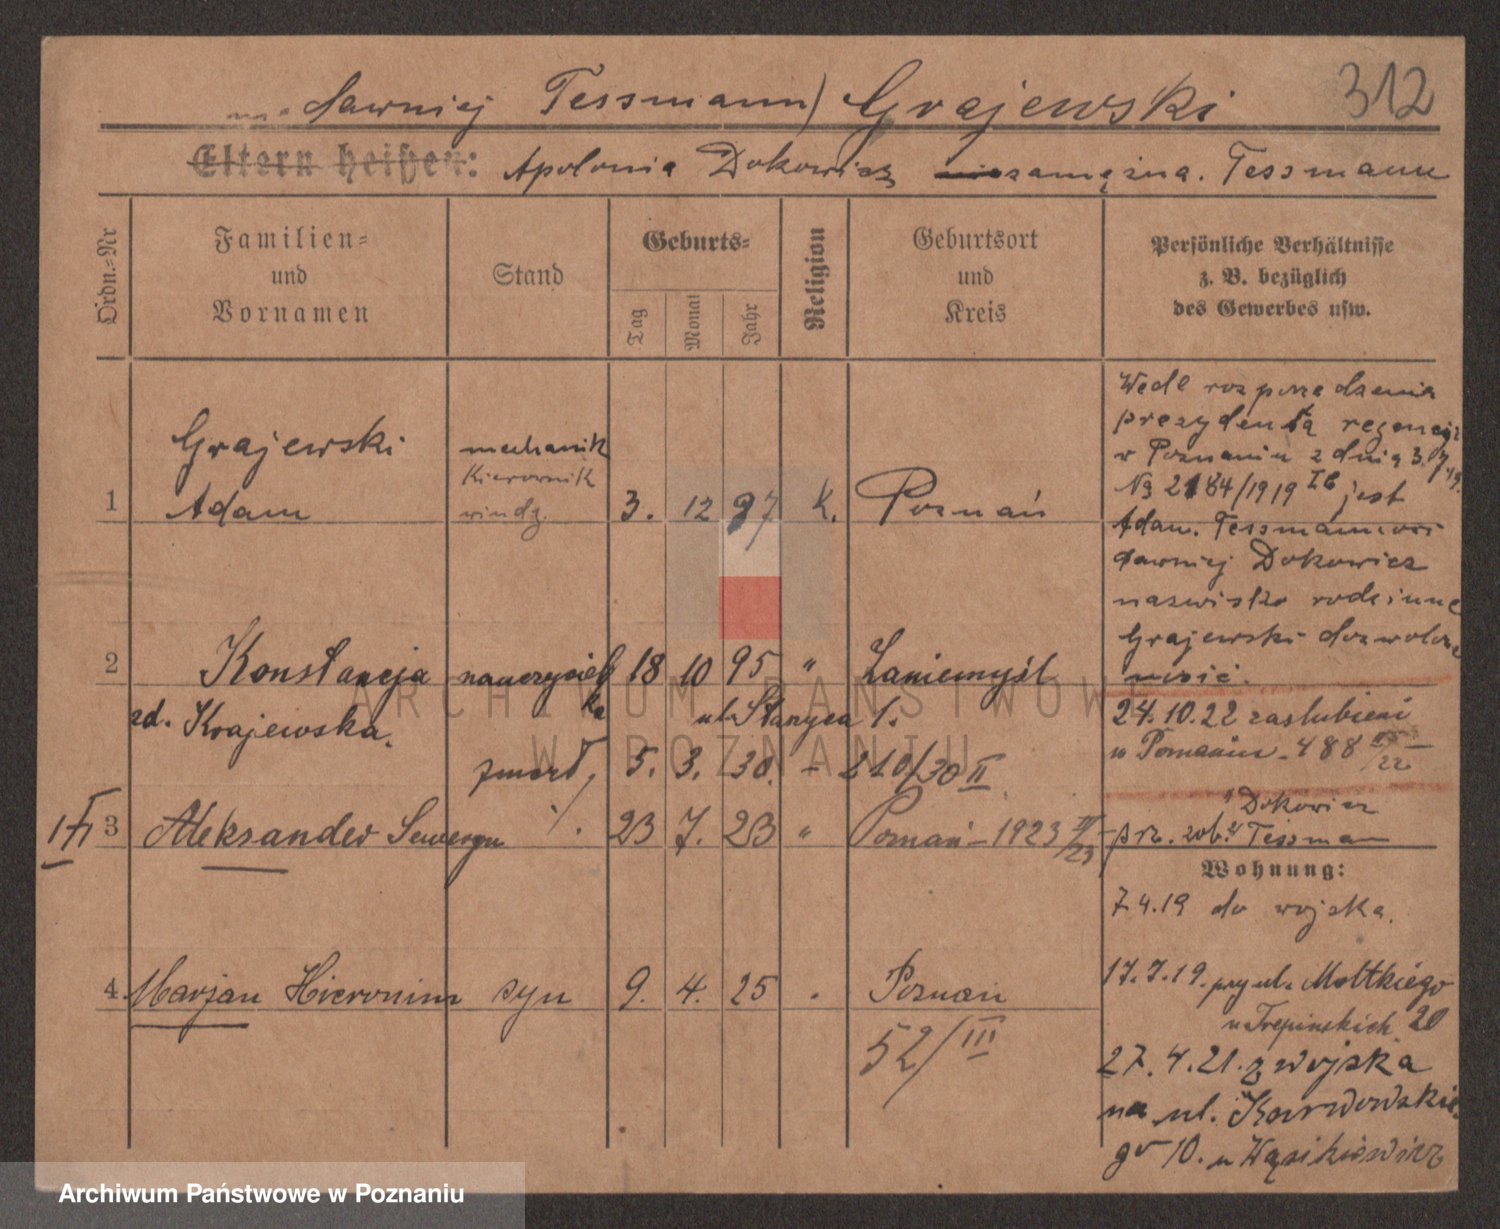 dawniej Tessmann) Grajewski 312
Eltern heißen: Apolonia Dokowicz zamężna. Tessmann
Ordn.-Nr
Familien-
und
Vornamen
Stand
Geburts-
Tag
Monat
Jahr
Religion
Geburtsort
und
Kreis
Persönliche Verhältnisse
z. B. bezüglich
des Gewerbes usw.
1 Grajewski
Adam
mechanik
Kierownik
windz.
3. 12 97 k. Poznań
Wedle rozporządzenia
prezydenta regencji
w Poznaniu z dnia 3.7.19.
No 2184/1919 IC jest
Adam. Tessmannowi
dawniej Dokowicz
nazwisko rodzinne
Grajewski dozwolone
nosić.
2 Konstancja nauczyciel
ka 18 10 95 " Zaniemyśl
zd. Krajewska. ul. Stanyca 1.
24.10.22 zaślubieni
w Poznaniu - 488
22
zmarł, 5. 3. 30. - 210/30 II
171 3 Aleksander Seweryn ·/. 23 7. 23 " Poznań - 1923 IV
23
" Dokowicz
prz. zob. " Tessman
Wohnung:
7.4.19 do wojska.
4. Marjan Hieronim syn 9. 4. 25 . Poznań
52/III
17.7.19. przy ul. Moltkiego
u Trepinskich 20
27.4.21. z wojska
na ul. Karwowskie-
go 10. u Wąsikiewicz
ARCHIWUM PAŃSTWOWE
W POZNANIU
Archiwum Państwowe w Poznaniu